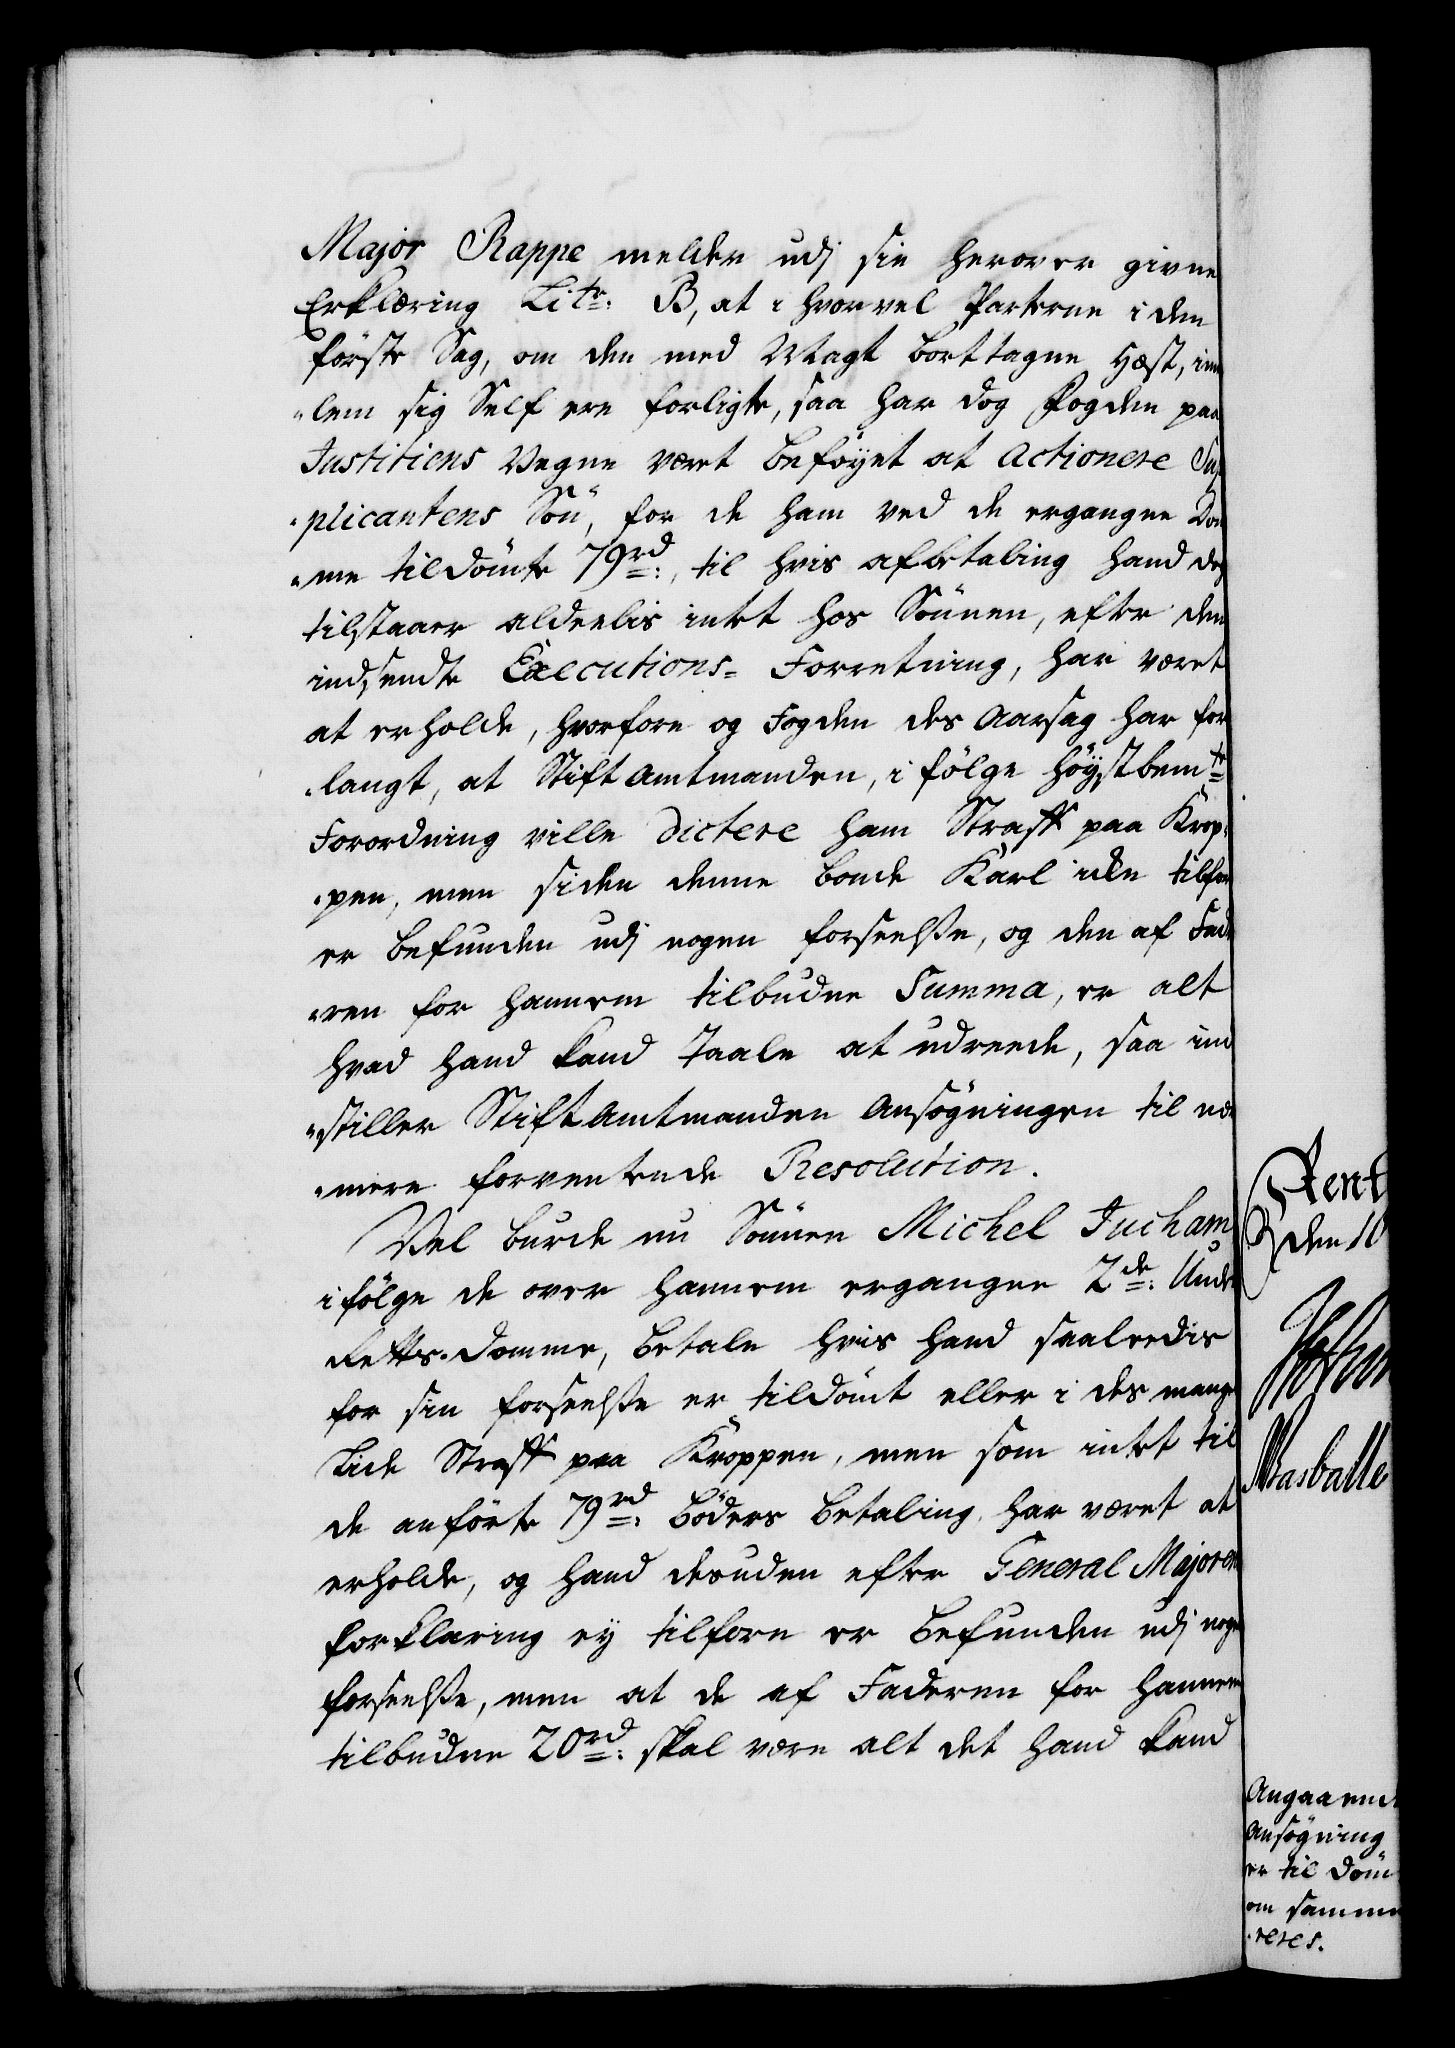 Major Rappe melder udj sin herover givne
Erklæring Litr. B, at i hvorvel Parterne i den
förste Sag, om den med Magt borttagne Hæst, im¬
"lem sig Self ere forligte, saa har dog Fogden paa
Justitiens Vegne været beföyet at Actionere Sup
"plicantens Sön, for de ham ved de ergangne Dom
"me tildömte 79rd:, til hvis afbetaling hand dog
tilstaaer alderlis intet hos Sönnen, efter den
indsendte Executions= Forretning, har været
at erholde, hvorfore og Fogden des Aarsag har for
"langt, at Stift Amtmanden, i fölge höystbemte
Forordning ville Dictere ham Straff paa Krop¬
"pen, men siden denne Bonde Karl icke tilforn
er befunden udj nogen forseelse, og den af Fade
"ren for hannem tilbudne Summa, er alt
hvad hand kand taale at udreede, saa ind
"stiller Stift Amtmanden Ansögningen til naa
"mere forventende Resolution.
Vel burde nu Sönnen Michel Jucham
i fölge de over hannem ergangne 2de: Under
Retts-Domme, betale hvis hand saaledis
for sin forseelse er tildömt eller i des mangel
Lide Straff paa Kroppen, men som intet til
de anförte 79rd: Böders betaling har været at
erholde, og hand desuden efter General Majoren
forklaring ey tilforn er befunden udj nogen
forseelse, men at de af Faderen for hannem
tilbudne 20rd: skal være alt det hand kand
Rent
den 10
Masballe
Angaaende
Ansögning
er til Döm
om samme
"reres.